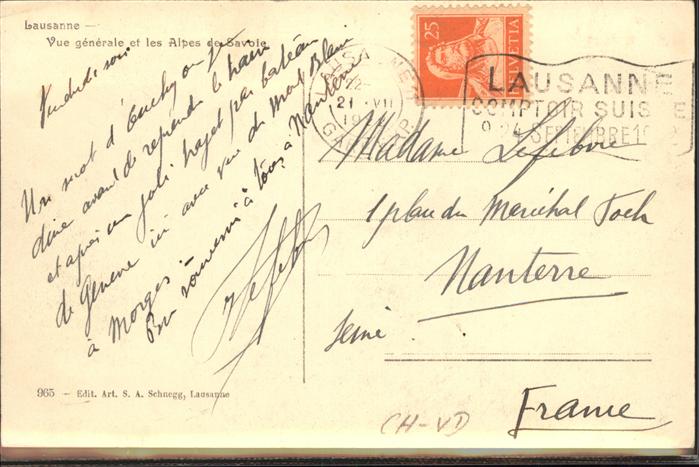 Lausanne
Vue générale et les Alpes de Savoie
Vendredi soir
Un mot d'Ouchy où je
dîne avant de reprendre le train
et après un joli trajet par bateau
de Genève ici avec vue du Mont Blanc
à Morges.
Bon souvenir à tous à Nanterre
Lefebvre
25
HELVETIA
LAUSANNE
21 VII
LAUSANNE
COMPTOIR SUISSE
SEPTEMBRE
Madame Lefebvre
1 place du Maréchal Foch
Nanterre
Seine
France
965 — Edit. Art. S. A. Schnegg, Lausanne
CH-VD